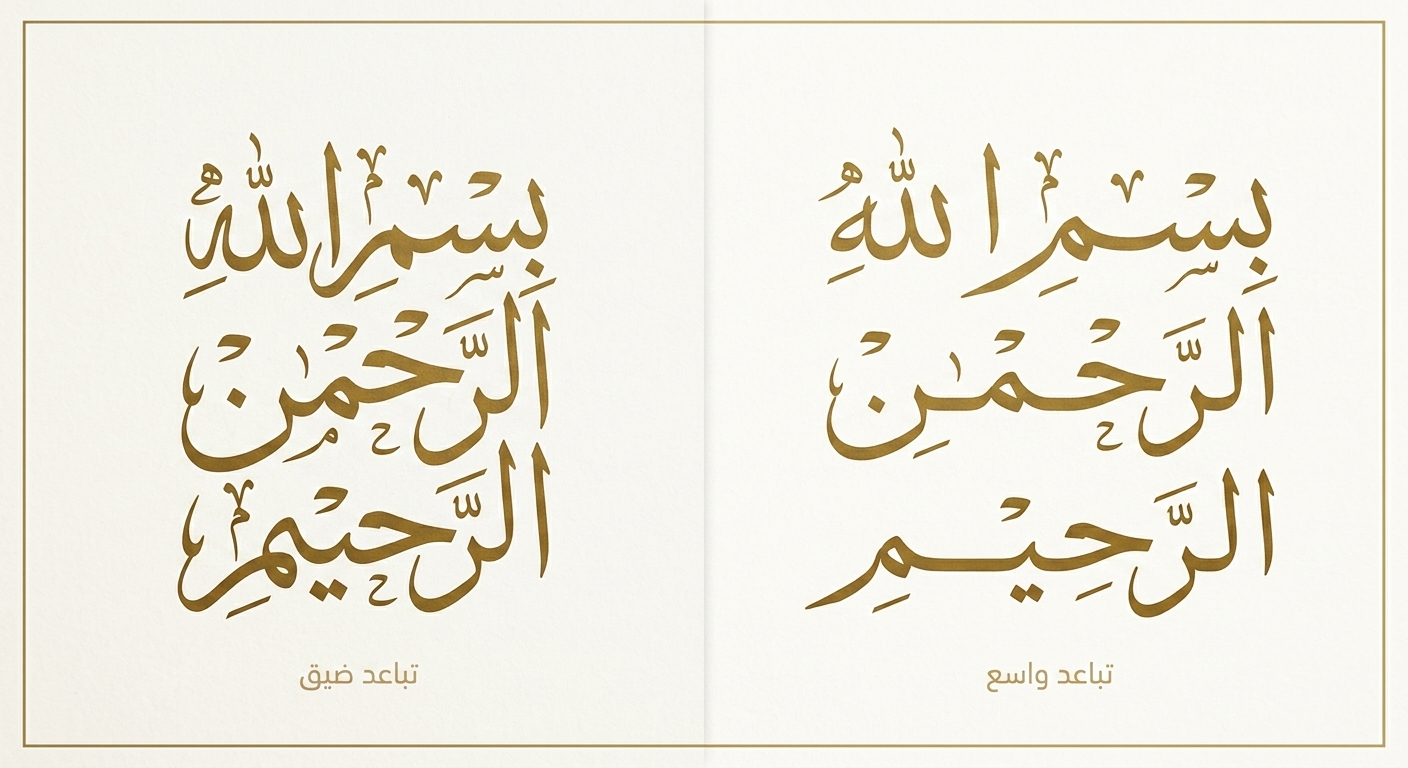 بِسْمِ اللّٰهِ
الرَّحْمٰنِ
الرَّحِيْمِ
تباعد واسع
بِسْمِ اللّٰهِ
الرَّحْمٰنْ
الرَّحيْمِ
تباعد ضيق